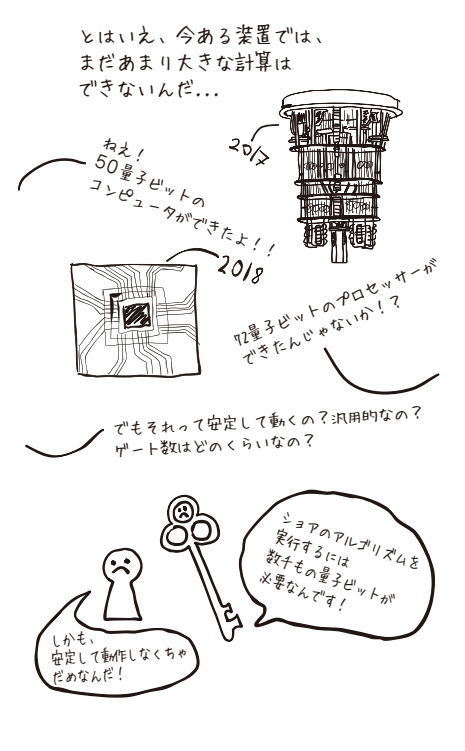 とはいえ、今ある装置では、
まだあまり大きな計算は
できないんだ...
2017
ねえ！
50量子ビットの
コンピュータができたよ！！
2018
72量子ビットのプロセッサーが
できたんじゃないか！？
でもそれって安定して動くの？汎用的なの？
ゲート数はどのくらいなの？
ショアのアルゴリズムを
実行するには
数千もの量子ビットが
必要なんです！
しかも、
安定して動作しなくちゃ
だめなんだ！